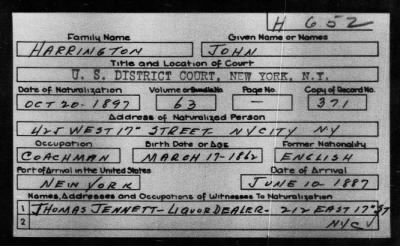 H 652
Family Name Given Name or Names
HARRINGTON JOHN
Title and Location of Court
U. S. DISTRICT COURT, NEW YORK, N.Y.
Date of Naturalization Volume or Bundle No. Page No. Copy of Record No.
OCT 20-1897 63 — 371
Address of Naturalized Person
425 WEST 17" STREET NYCITY NY
Occupation Birth Date or Age Former Nationality
COACHMAN MARCH 17-1862 ENGLISH
Port of Arrival in the United States Date of Arrival
NEW YORK JUNE 10-1887
Names, Addresses and Occupations of Witnesses To Naturalization
1 THOMAS JENNETT-LIQUOR DEALER- 212 EAST 17" ST
2 NYC